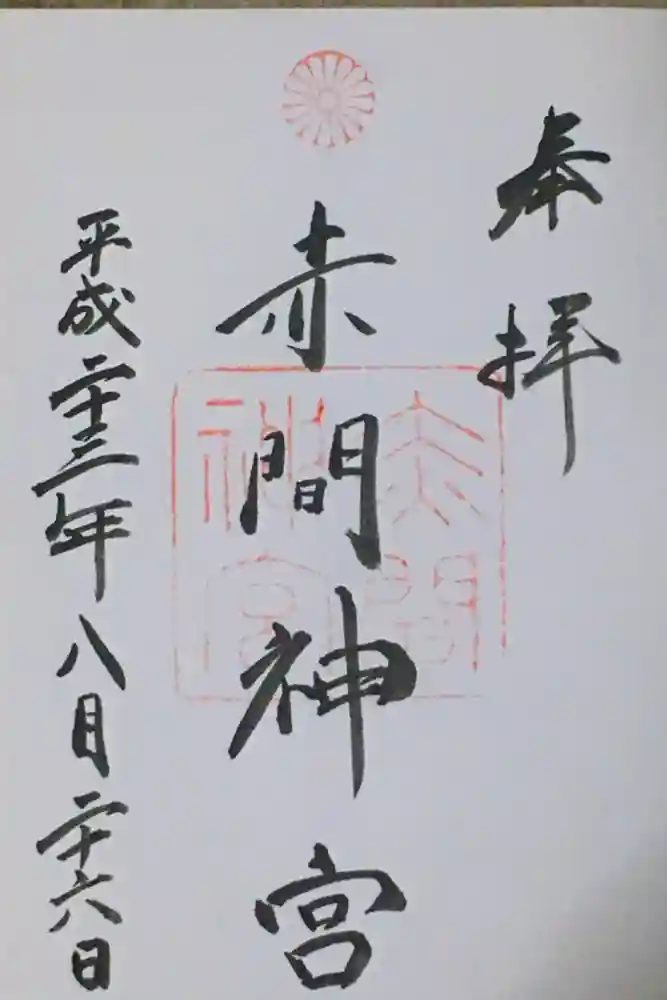 奉拝
赤間神宮
赤間神宮
平成二十三年八月二十六日